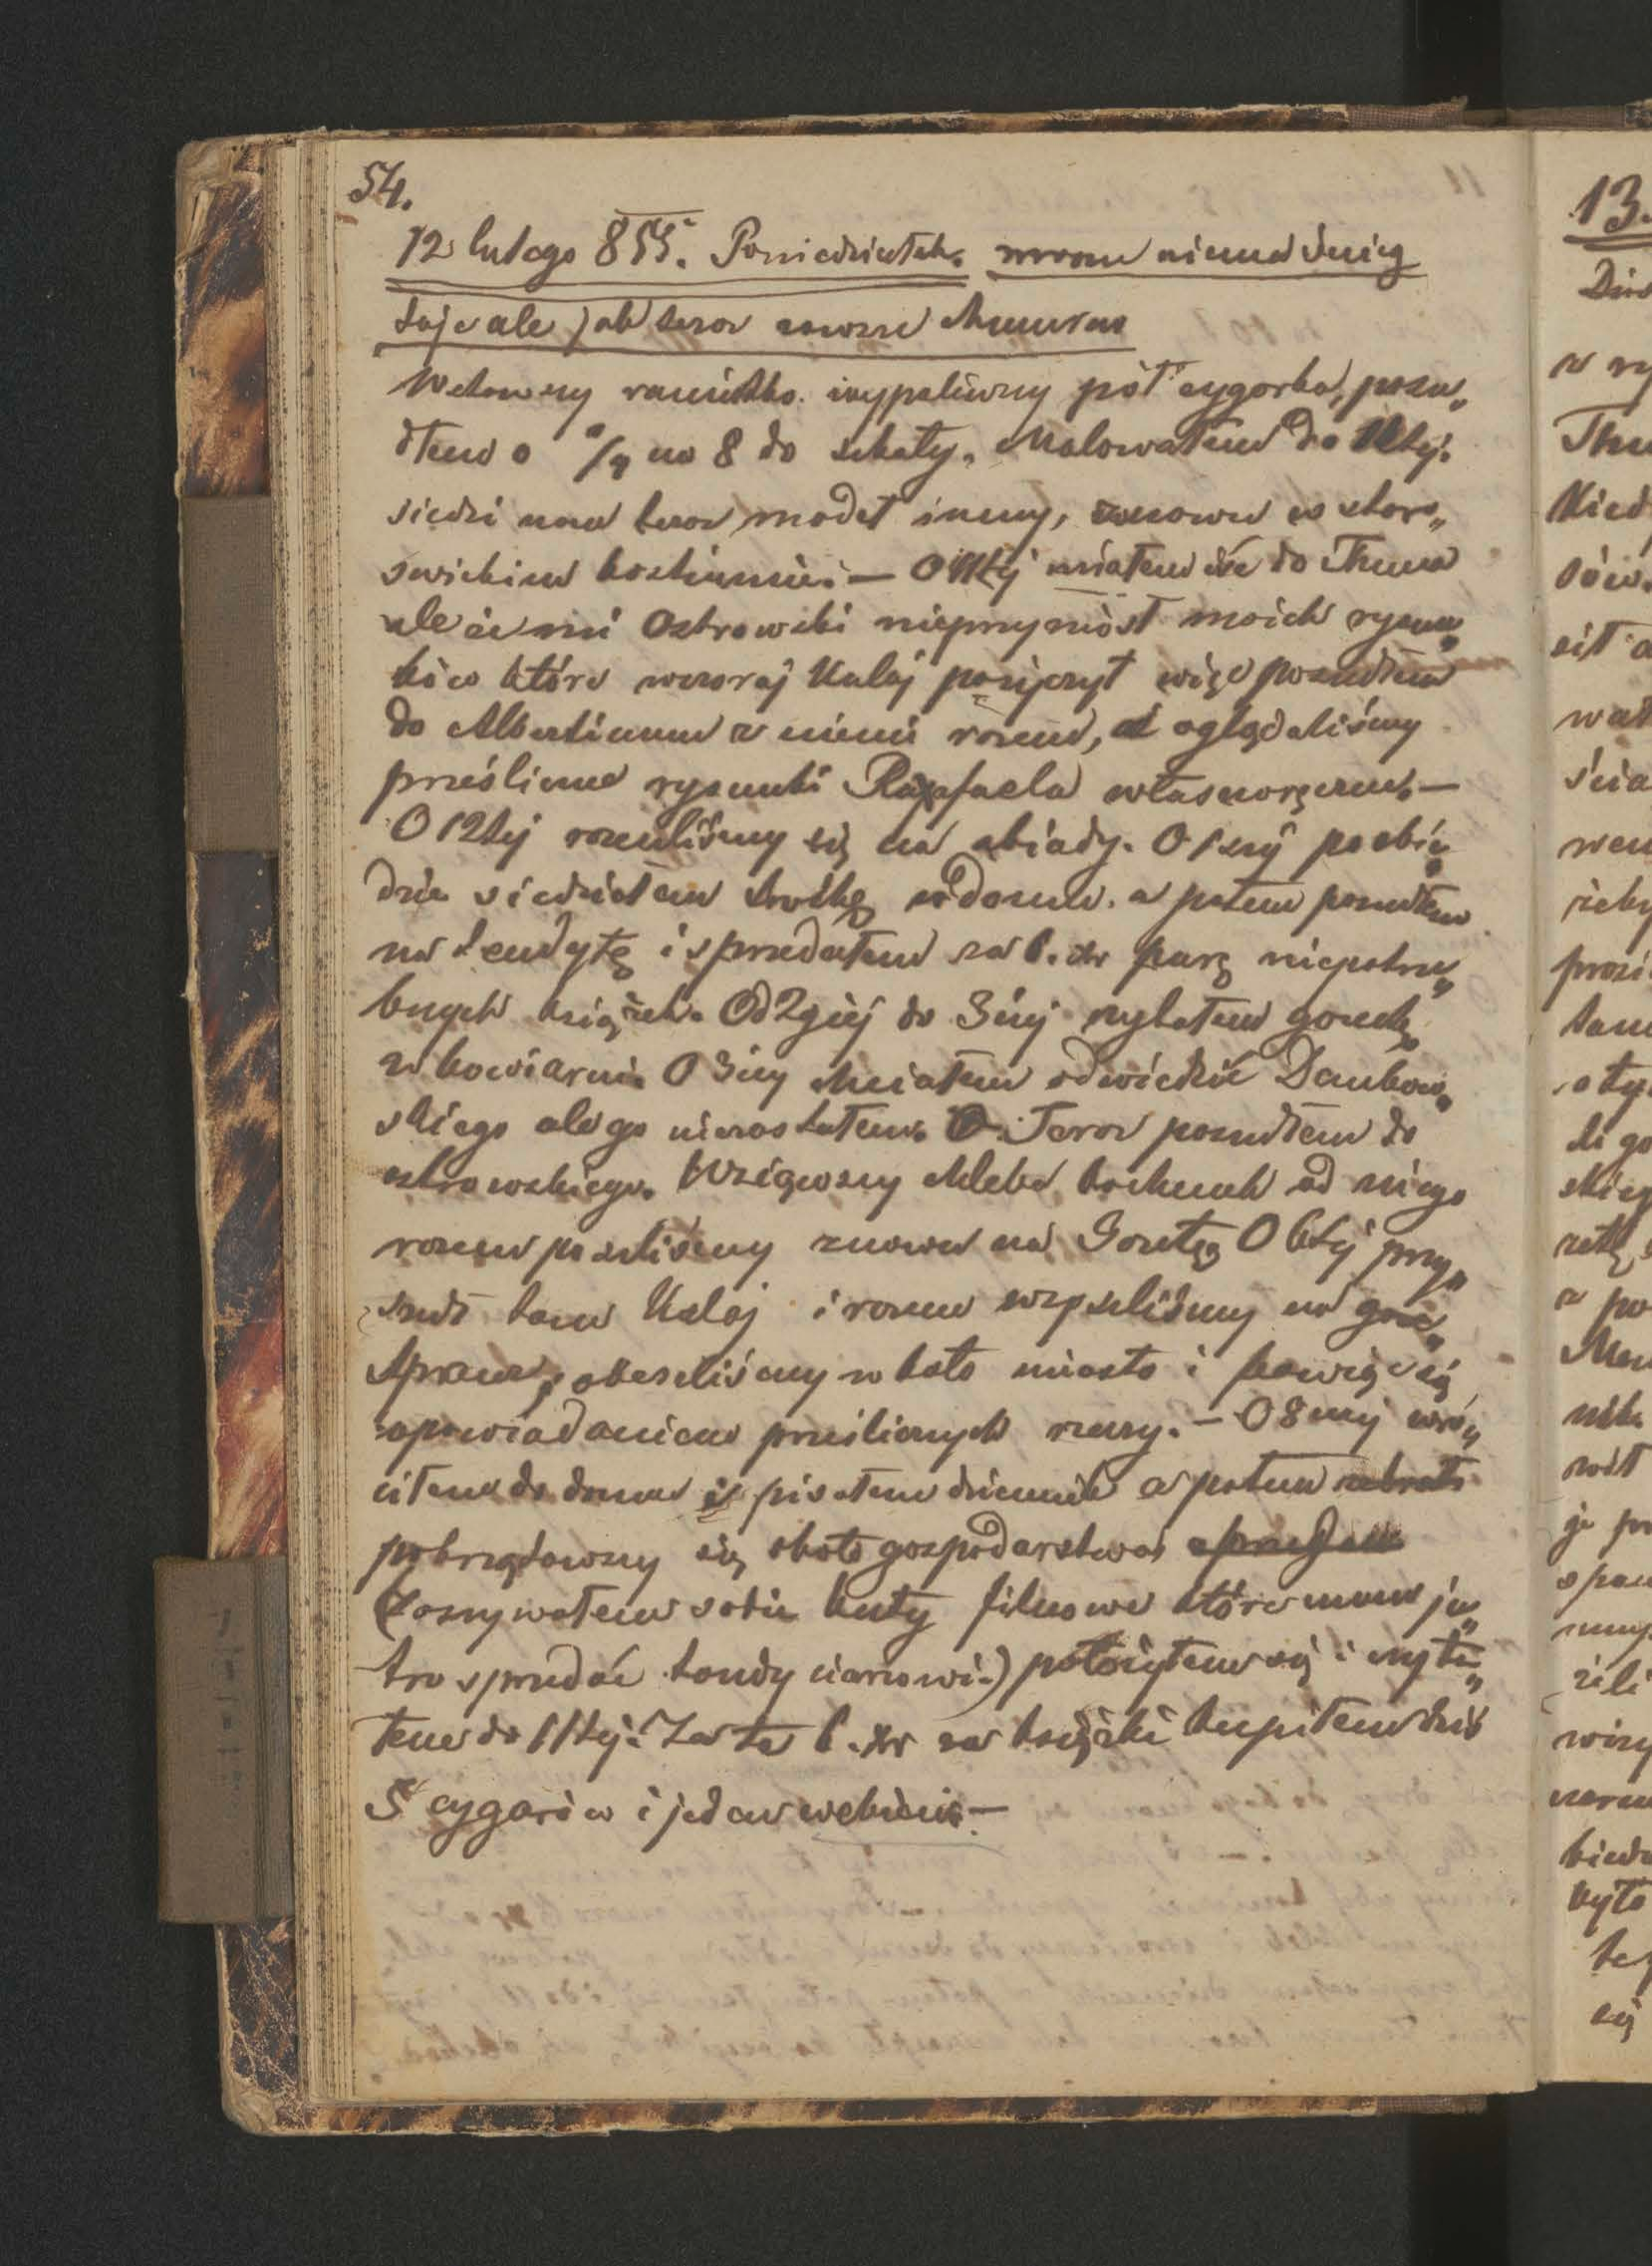 54.
12 lutego 855. Poniedziałek. mrozu niema śnieg
taje ale jak teraz zawsze chmurno
Wstawszy raniutko. wypaliwszy pół cygarka, posze„
dłem o /4 na 8 do szkoły. Malowałem do 11tej.
siedzi nam teraz model inny, znowu w staro„
swickim kostiumie. — O 11tej miałem iść do Thuna
ale że mi Ostrowski nieprzyniósł moich rysun„
ków które wczoraj Kulaj pożyczył więc poszedłem
do Albertinum z nimi razem, i oglądaliśmy
prześliczne rysunki Raffaela własnoręczne. —
O 12tej rozeszliśmy się na obiady. O 1szej po obie„
dzie siedziałem troszkę w domu. a potem poszedłem
na tendytę i sprzedałem za 6. xr parę niepotrze„
bnych książek. Od 2giej do 3ciej czytałem gazetę
w kawiarni. O 3ciej chciałem odwiedzić Dembow„
skiego ale go niezastałem. Teraz poszedłem do
Ostrowskiego. Wziąwszy chleba kochenek od niego
razem poszliśmy znowu na Gazetę O 6tej przy„
szedł tam Kulaj i razem wyszliśmy na prze„
chadzkę, obeszliśmy w koło miasto i bawiąc się
opowiadaniem prześlicznych rzeczy. — O 8mej wró„
ciłem do domu i pisałem dziennik a potem
pobrzątawszy się około gospodarstwa
(Zaszywałem sobie buty filcowe które mam ju„
tro sprzedać tandyciarzowi.) położyłem się i czyta„
łem do 11tej. Za te 6. xr za książki kupiłem dziś
5 cygarów i jeden